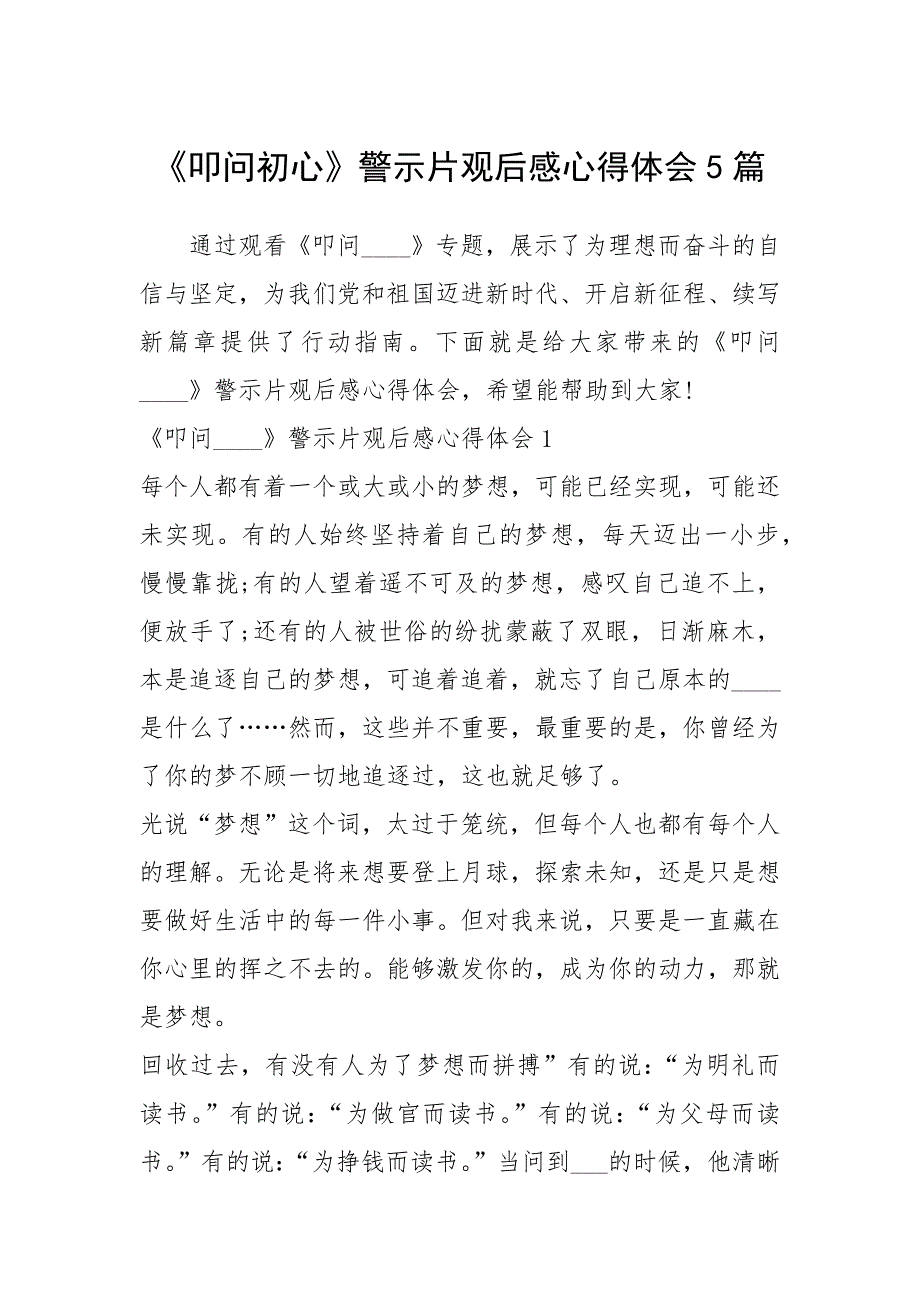 《叩问初心》警示片观后感心得体会5篇
通过观看《叩问____》专题，展示了为理想而奋斗的自
信与坚定，为我们党和祖国迈进新时代、开启新征程、续写
新篇章提供了行动指南。下面就是给大家带来的《叩问
____》警示片观后感心得体会，希望能帮助到大家!
《叩问____》警示片观后感心得体会1
每个人都有着一个或大或小的梦想，可能已经实现，可能还
未实现。有的人始终坚持着自己的梦想，每天迈出一小步，
慢慢靠拢;有的人望着遥不可及的梦想，感叹自己追不上，
便放手了;还有的人被世俗的纷扰蒙蔽了双眼，日渐麻木，
本是追逐自己的梦想，可追着追着，就忘了自己原本的____
是什么了……然而，这些并不重要，最重要的是，你曾经为
了你的梦不顾一切地追逐过，这也就足够了。
光说“梦想”这个词，太过于笼统，但每个人也都有每个人
的理解。无论是将来想要登上月球，探索未知，还是只是想
要做好生活中的每一件小事。但对我来说，只要是一直藏在
你心里的挥之不去的。能够激发你的，成为你的动力，那就
是梦想。
回收过去，有没有人为了梦想而拼搏”有的说：“为明礼而
读书。”有的说：“为做官而读书。”有的说：“为父母而读
书。”有的说：“为挣钱而读书。”当问到___的时候，他清晰